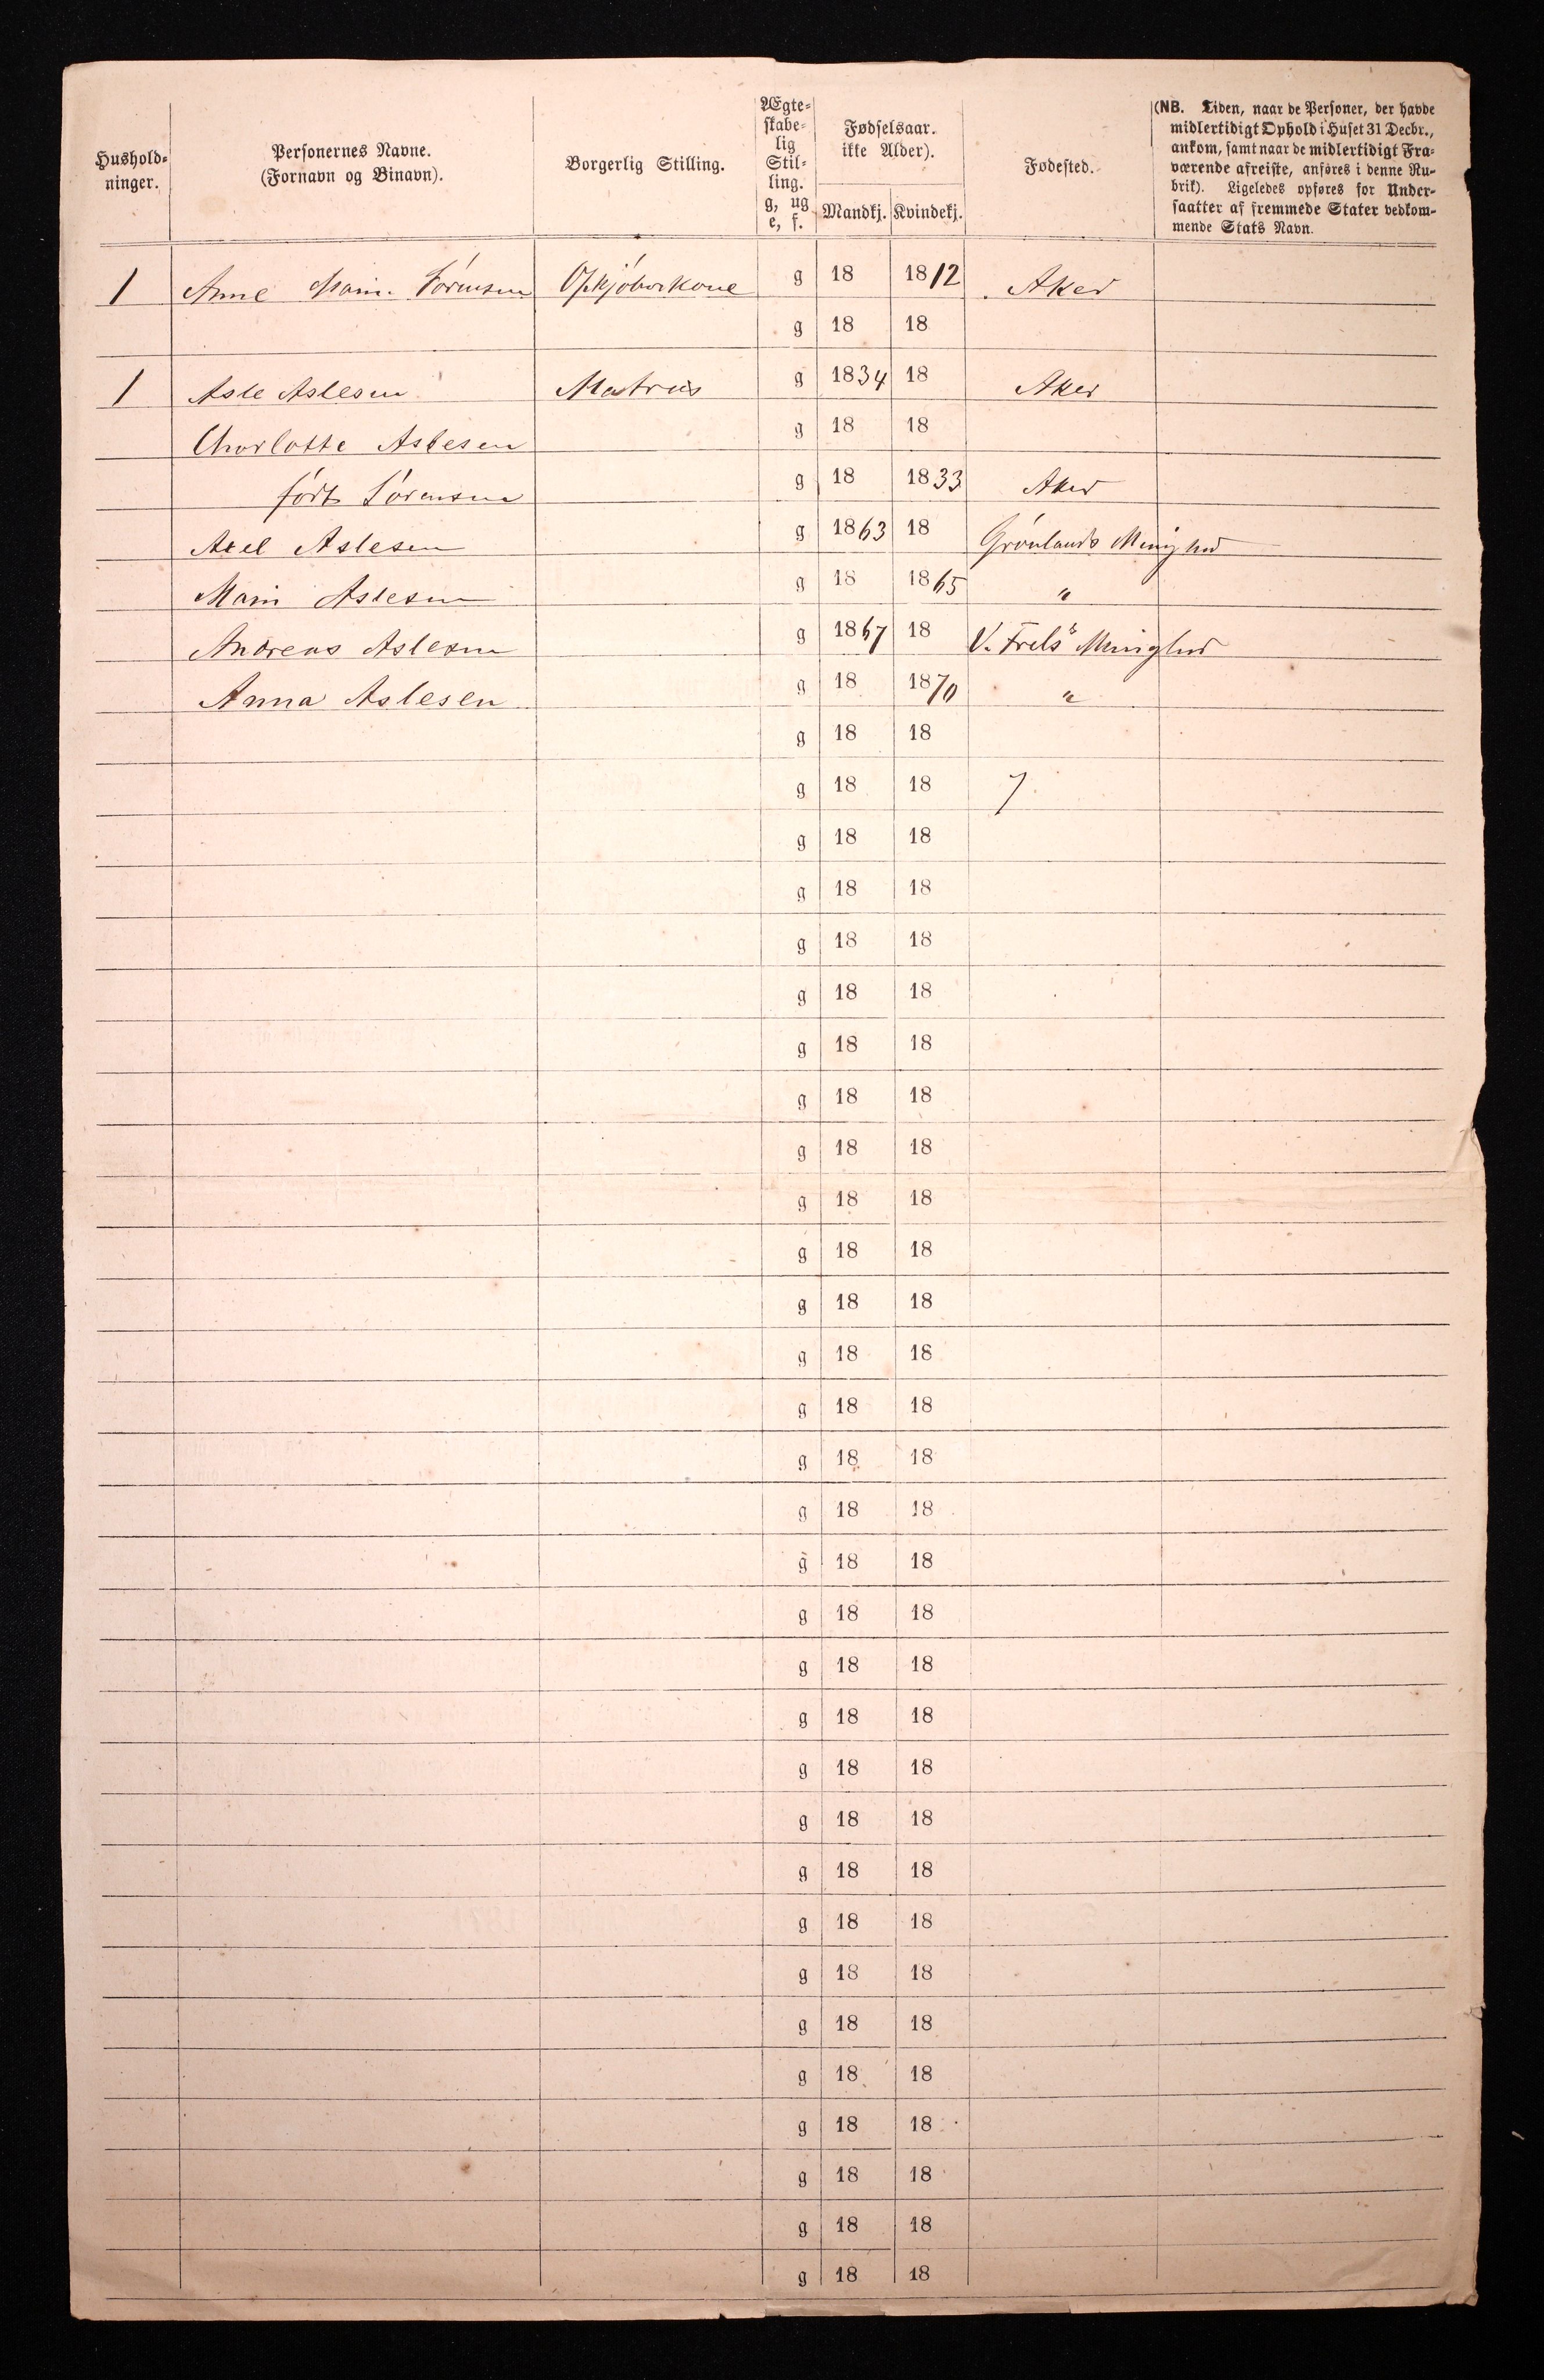 Hushold-
ninger.
Personernes Navne.
(Fornavn og Binavn).
Borgerlig Stilling.
Ægte-
skabe-
lig
Stil-
ling.
g, ug
e, f.
Fødselsaar.
ikke Alder).
Mandkj. Kvindekj.
Fødested.
(NB. Tiden, naar de Personer, der havde
midlertidigt Ophold i Huset 31 Decbr.,
ankom, samt naar de midlertidigt Fra-
værende afreiste, anføres i denne Ru-
brik). Ligeledes opføres for Under-
saatter af fremmede Stater vedkom-
mende Stats Navn.
1 Anne Marie Sørensen Opkjøberkone g 18 1812 Aker
g 18 18
1 Asle Aslesen Matros g 1834 18 Aker
Charlotte Aslesen g 18 18
født Sørensen g 18 1833 Aker
Axel Aslesen g 1863 18 Grønlands Menighed
Marie Aslesen g 18 1865 "
Andreas Aslesen g 1867 18 V. Frels Menighed
Anna Aslesen g 18 1870 "
g 18 18
g 18 18 7
g 18 18
g 18 18
g 18 18
g 18 18
g 18 18
g 18 18
g 18 18
g 18 18
g 18 18
g 18 18
g 18 18
g 18 18
g 18 18
g 18 18
g 18 18
g 18 18
g 18 18
g 18 18
g 18 18
g 18 18
g 18 18
g 18 18
g 18 18
g 18 18
g 18 18
g 18 18
g 18 18
g 18 18
g 18 18